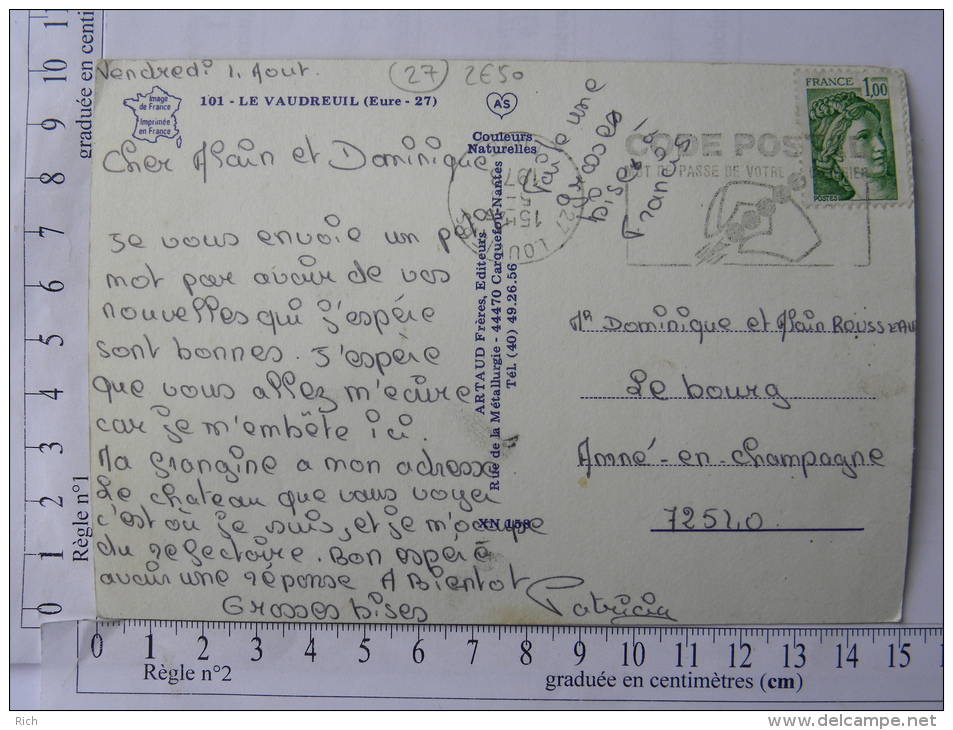 Vendredi 1. Aout.
(27) 2E50
Image de France
Imprimée en France
101 - LE VAUDREUIL (Eure - 27)
AS
Couleurs Naturelles
FRANCE 1,00
POSTES
CODE POSTAL
MOT DE PASSE DE VOTRE
Cher Alain et Dominique
Je vous envoie un petit
mot par avoir de vos
nouvelles qui j'espére
sont bonnes. J'espére
que vous allez m'ecrire
car je m'embête ici.
Ma frangine a mon adresse
Le chateau que vous voyer
c'est où je suis, et je m'occupe
du refectoire. Bon espére
avoir une réponse A Bientot
Grosses bises
Patricia
Fait une
grosses
bises à
Francis
ARTAUD Frères, Editeurs
Rue de la Métallurgie - 44470 Carquefou-Nantes
Tél. (40) 49.26.56
XN 158
27 LOU
15H
197
Mr Dominique et Alain ROUSSEAU
Le bourg
Amné-en-champagne
72540
Règle n°1
graduée en centi
0 1 2 3 4 5 6 7 8 9 10 11
0 1 2 3 4 5 6 7 8 9 10 11 12 13 14 15
Règle n°2
graduée en centimètres (cm)
Rich
www.delcampe.net